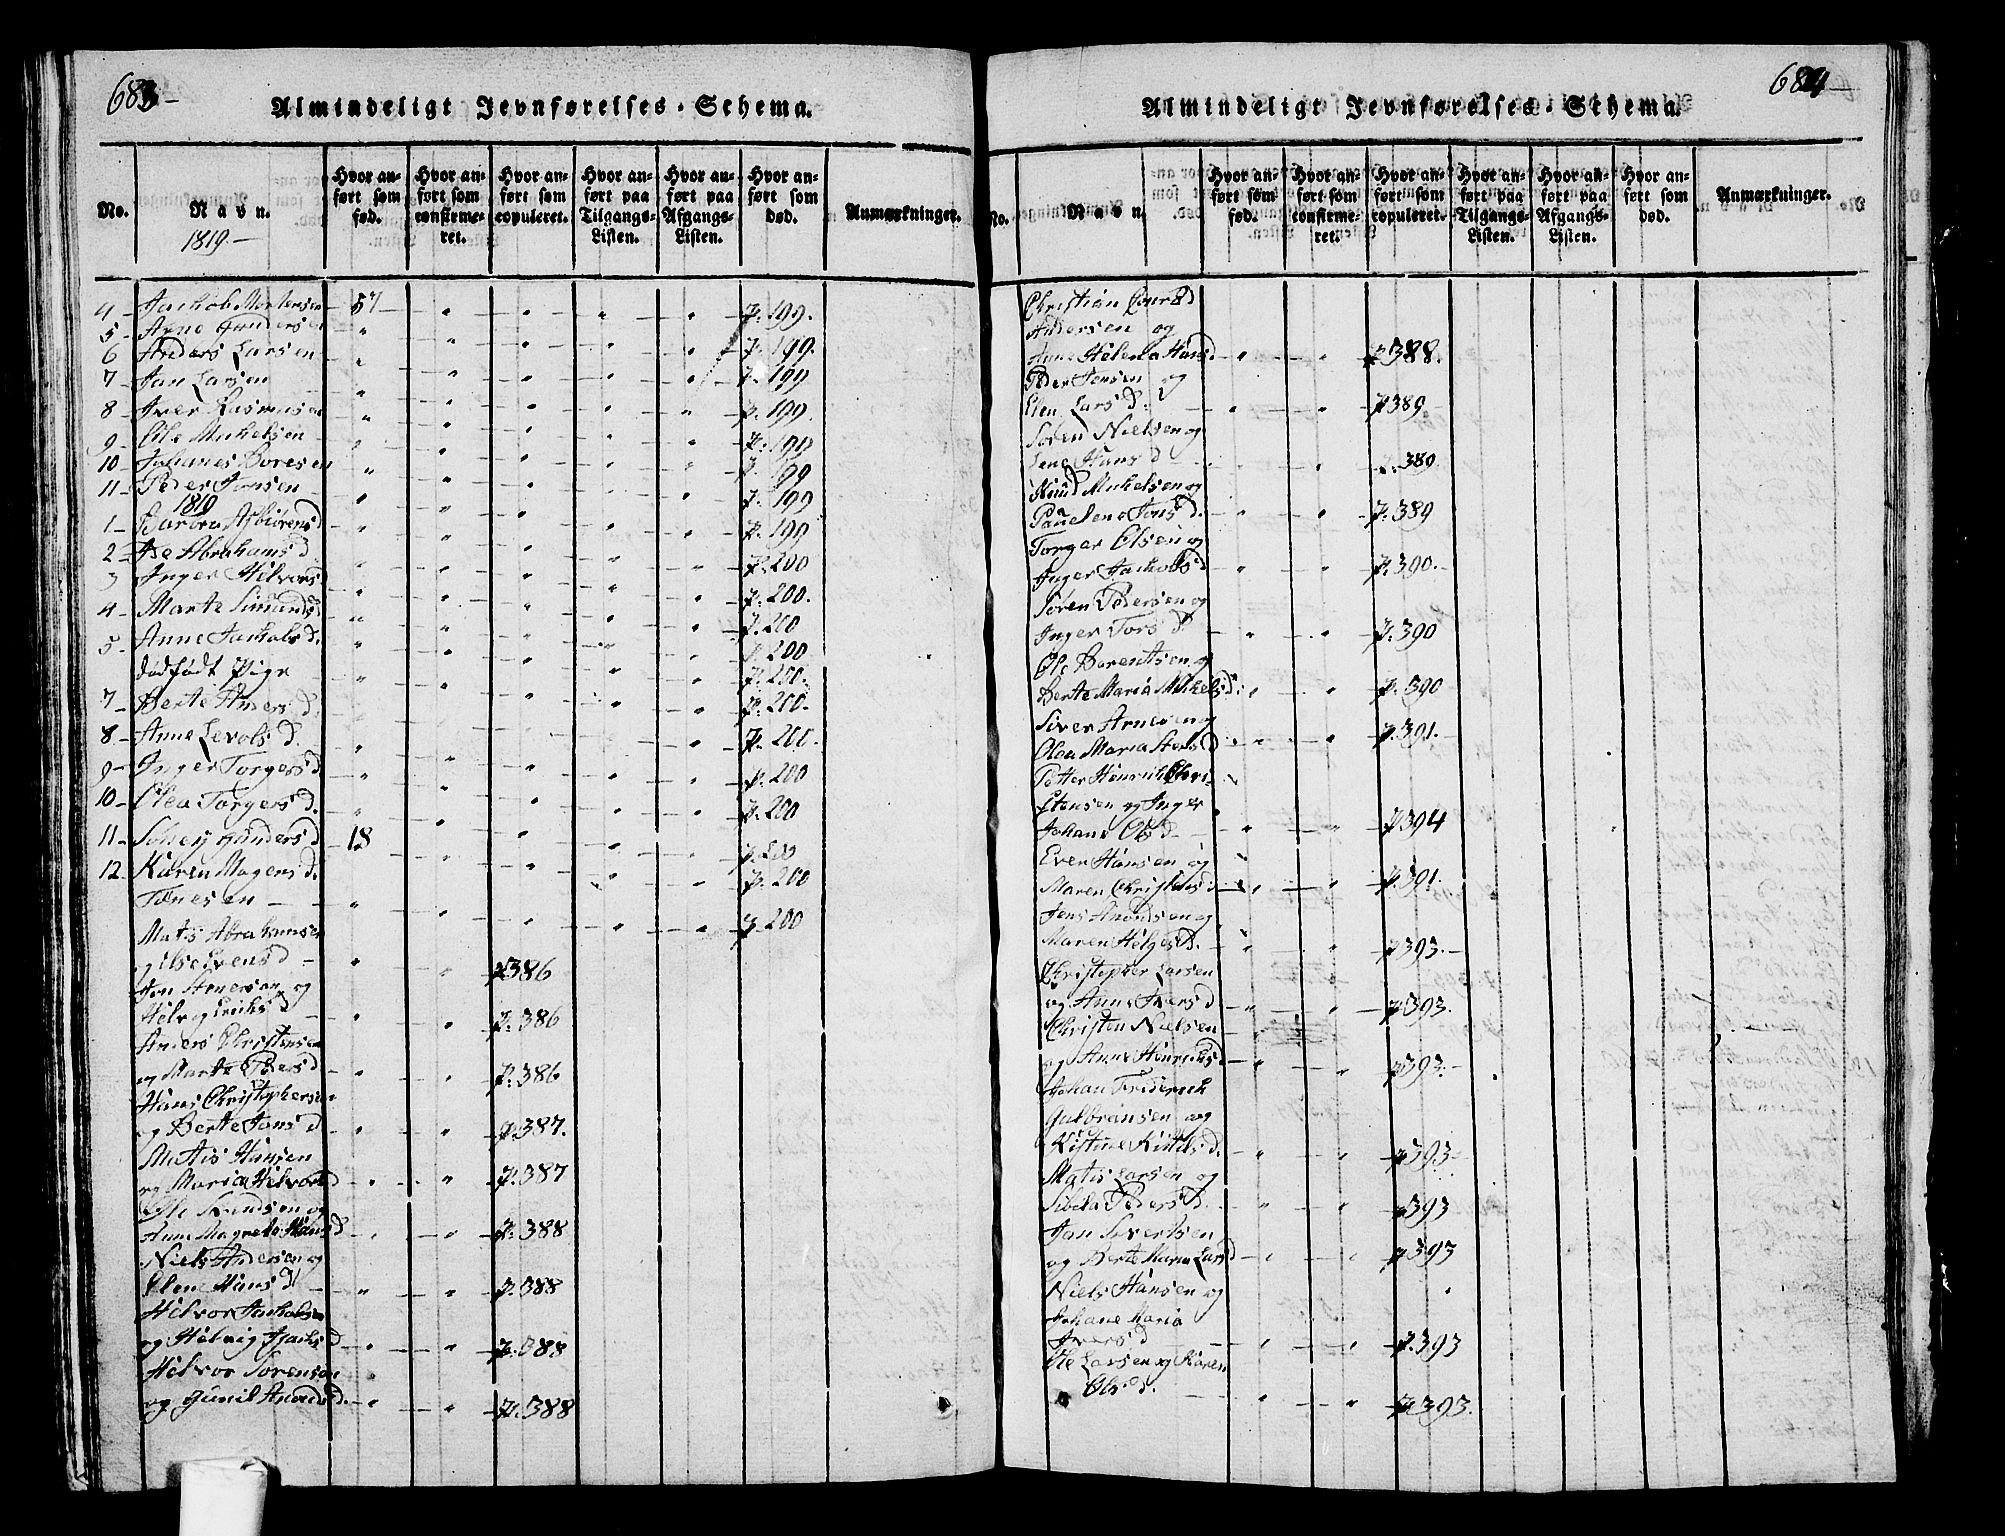 683 -
Almindeligt Jevnførelses-Schema.
No.
Navn.
1819 -
Hvor anført som fød.
Hvor anført som confirmeret.
Hvor anført som copuleret.
Hvor anført paa Tilgangs-Listen.
Hvor anført paa Afgangs-Listen.
Hvor anført som død.
Anmærkninger.
4 - Jachob Mortensen 57 p. 199.
5 - Arne Gundersen p. 199.
6 Anders Larsen p. 199
7 - Jan Larsen p. 199.
8 - Iver Rasmusen p. 199
9 - Ole Michelsen p. 199
10 - Johanes Boresen p. 199
11 - Peder Jonsen p. 199
1819
1 - Barbru Asbiørensd p. 200
2 - Abrahamsd p. 200.
3 Inger Helvorsd p. 200
4 - Marte Simunds p. 200
5 - Anne Jachobsd. p. 200.
dødfødt Pige p. 200.
7 - Berte Andersd. p. 200.
8 - Anne Levolsd. p. 200
9 - Inger Torgersd. p. 200
10 - Olea Torgersd. p. 200
11 - Gundersd 18 p. 200
12. Karen Magensd.
Tønesen p. 200
Matis Abrahamsen
og Else Evensd - p 386
Jon Arnersen og
Helvig Eriksd p. 386
Anders Christensen
og Marte Pedersd p. 386
Hans Christophersen
og Berte Jonsd p. 387.
Matis Hansen
og Maria Helvorsd p. 387
Ole Knudsen og
Anne Magrete Hansd p. 388
Niels Andersen og
Elen Hansd p. 388
Helvor Jachobsen
og Helvig Isachsd p. 388
Helvor Sørensen
og Gunil Anundsd. p. 388
684 -
Almindeligt Jevnførelses-Schema.
No.
Navn.
Hvor anført som fød.
Hvor anført som confirmeret.
Hvor anført som copuleret.
Hvor anført paa Tilgangs-Listen.
Hvor anført paa Afgangs-Listen.
Hvor anført som død.
Anmærkninger.
Christian
Andersen og
Anne Helena Hansd p 388.
Peder Jensen og
Elen Larsd: p 389
Søren Nielsen og
Lene Hansd p. 389
Knud Michelsen og
Paulene Jonsd. p. 389
Torger Olsen og
Inger Jachobsd p. 390.
Søren Pedersen og
Inger Torsd. p. 390
Ole Borentsen og
Berte Maria Mikelsd. p. 390
Siver Arnesen og
Olea Maria p. 391.
Petter Henrich Chri-
stensen og Inger
Johane Olsd p 394
Even Hansen og
Maren Christensd p. 391.
Jens Anondsen og
Maren Helgesd. p 393.
Christopher Larsen
og Anne Iversd p. 393.
Christen Nielsen
og Anne Henrichsd p 393.
Johan Friderich
Gulbransen og
Kistine Kittilsd. p 393.
Matis Larsen og
Sibela Pedersd. p 393
Jan Sivertsen
og Berte Maria Larsd p 393
Niels Hansen og
Johane Maria
Iversd p. 393
Ole Larsen og Karen
Olsd. p. 393.